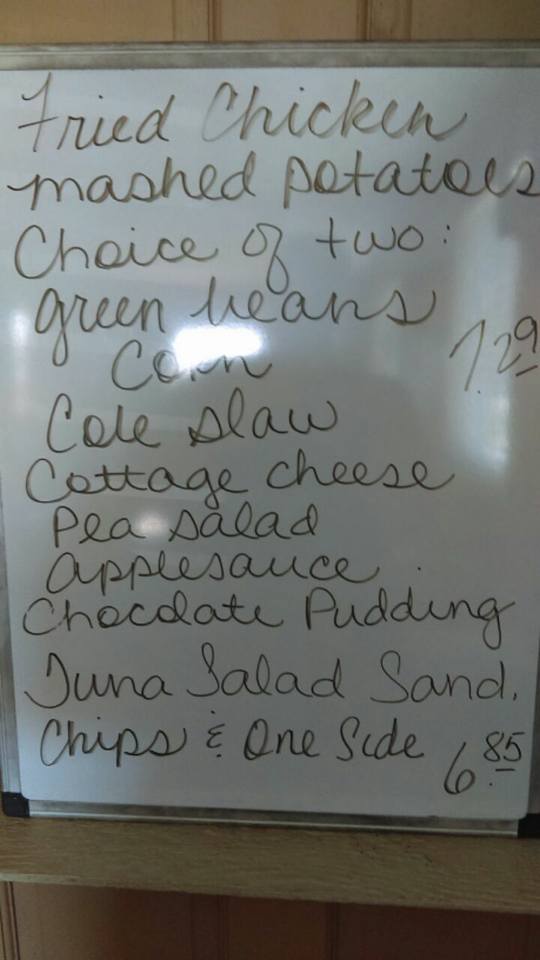 Fried Chicken
mashed potatoes
Choice of two:
green beans
Corn
7.29
Cole slaw
Cottage cheese
Pea salad
applesauce
Chocolate Pudding
Tuna Salad Sand.
Chips & One Side 6.85